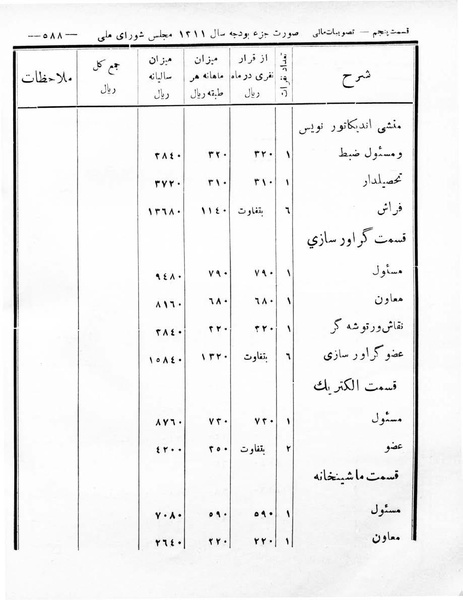 قسمت پنجم — تصویبات مالی صورت جزء بودجه سال ۱۳۱۱ مجلس شورای ملی —۵۸۸—
شرح تعداد نفرات از قرار نفری در ماه ریال میزان ماهانه هر طبقه ریال میزان سالیانه ریال جمع کل ریال ملاحظات
منشی اندیکاتور نویس
و مسئول ضبط ۱ ۳۲۰ ۳۲۰ ۳۸٤۰
تحصیلدار ۱ ۳۱۰ ۳۱۰ ۳۷۲۰
فراش ٦ بتفاوت ۱۱٤۰ ۱۳٦۸۰
قسمت گراور سازی
مسئول ۱ ۷۹۰ ۷۹۰ ۹٤۸۰
معاون ۱ ٦۸۰ ٦۸۰ ۸۱٦۰
نقاش ورتوشه گر ۱ ۳۲۰ ۳۲۰ ۳۸٤۰
عضو گراور سازی ٦ بتفاوت ۱۳۲۰ ۱۵۸٤۰
قسمت الکتریك
مسئول ۱ ۷۳۰ ۷۳۰ ۸۷٦۰
عضو ۲ بتفاوت ۳۵۰ ٤۲۰۰
قسمت ماشینخانه
مسئول ۱ ۵۹۰ ۵۹۰ ۷۰۸۰
معاون ۱ ۲۲۰ ۲۲۰ ۲٦٤۰